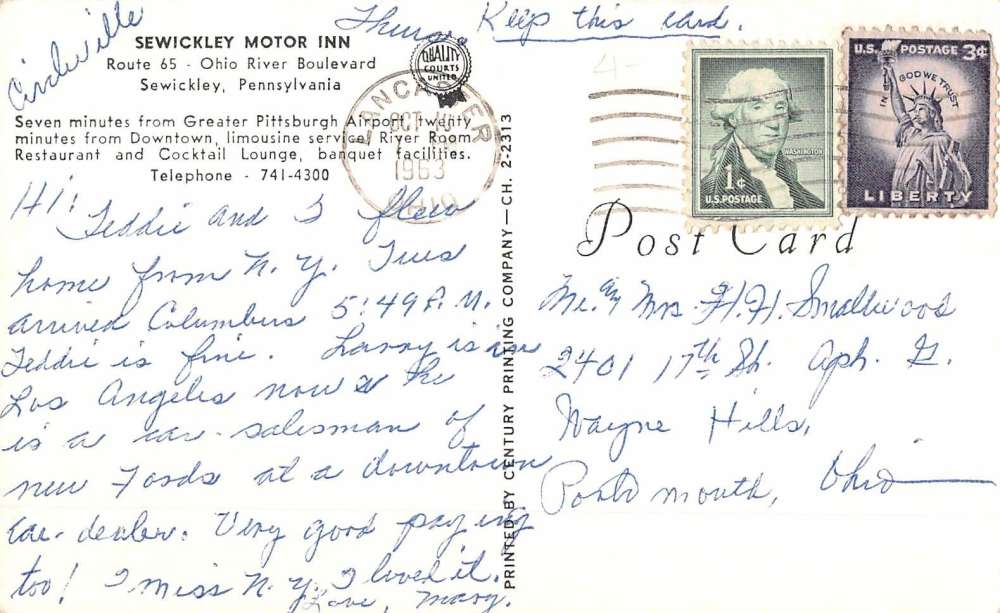 Circleville
Thurs. Keep this card.
SEWICKLEY MOTOR INN
Route 65 - Ohio River Boulevard
Sewickley, Pennsylvania
QUALITY
COURTS
UNITED
Seven minutes from Greater Pittsburgh Airport, twenty
minutes from Downtown, limousine service, River Room
Restaurant and Cocktail Lounge, banquet facilities.
Telephone - 741-4300
LANCASTER
OCT
1963
OHIO
4-
Hi:
Teddie and I flew
home from N.Y. Tues
arrived Columbus 5:49 P.M.
Teddie is fine. Lanny is in
Los Angeles now & he
is a car-salesman of
new Fords at a downtown
car-dealer. Very good paying
too! I miss N.Y. I loved it.
Love, Mary.
PRINTED BY CENTURY PRINTING COMPANY—CH. 2-2313
WASHINGTON
1¢
U.S. POSTAGE
U.S. POSTAGE 3¢
IN GOD WE TRUST
LIBERTY
Post Card
Mr. & Mrs. H.H. Smallwood
2401 17th St. Apt.
Wayne Hills,
Portsmouth, Ohio